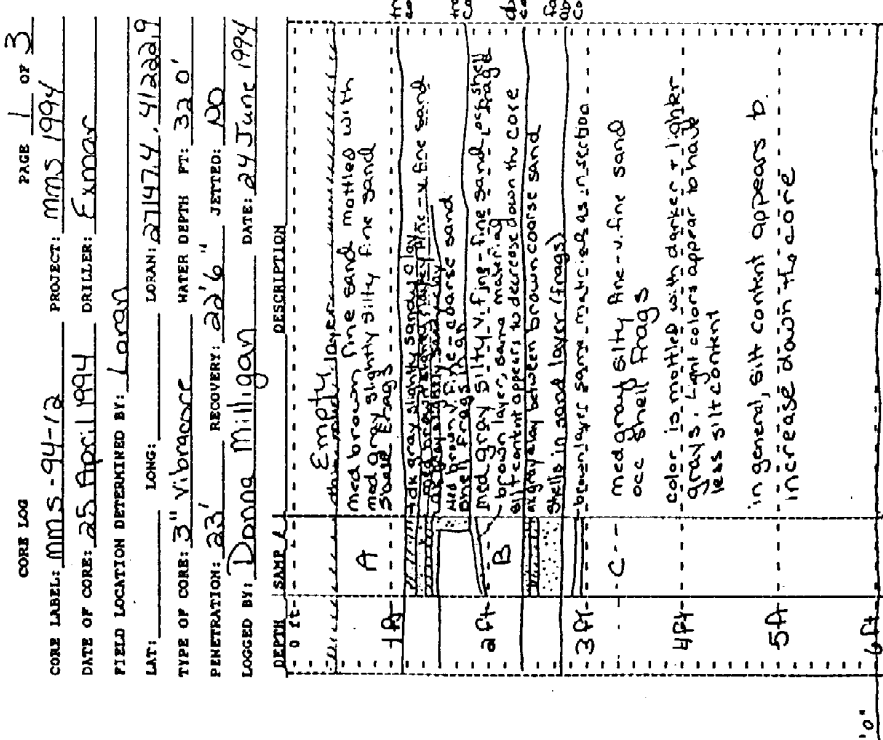 CORE LOG PAGE 1 OF 3
CORE LABEL: MMS-94-12 PROJECT: MMS 1994
DATE OF CORE: 25 April 1994 DRILLER: Exmar
FIELD LOCATION DETERMINED BY: Loran
LAT: LONG: LORAN: 27147.4, 41222.9
TYPE OF CORE: 3" Vibracore WATER DEPTH FT: 32.0'
PENETRATION: 23' RECOVERY: 22'6" JETTED: NO
LOGGED BY: Donna Milligan DATE: 24 June 1994
DEPTH SAMP DESCRIPTION
0 ft
Empty
med brown fine sand mottled with
A med gray slightly silty fine sand
Shell Frags
1ft
dk gray slightly sandy clay
med brown v. fine - coarse sand
Shell Frags
med gray silty v. fine - fine sand, occ shell frags
2ft
brown layer, same material
B silt content appears to decrease down the core
gray clay between brown coarse sand
Shells in sand layer (frags)
3ft
brown layer same material as in section
C med gray silty fine-v. fine sand
occ shell frags
color is mottled with darker + lighter
4ft
grays. Light colors appear to have
less silt content
in general, silt content appears to
5ft
increase down the core
6ft
'0"